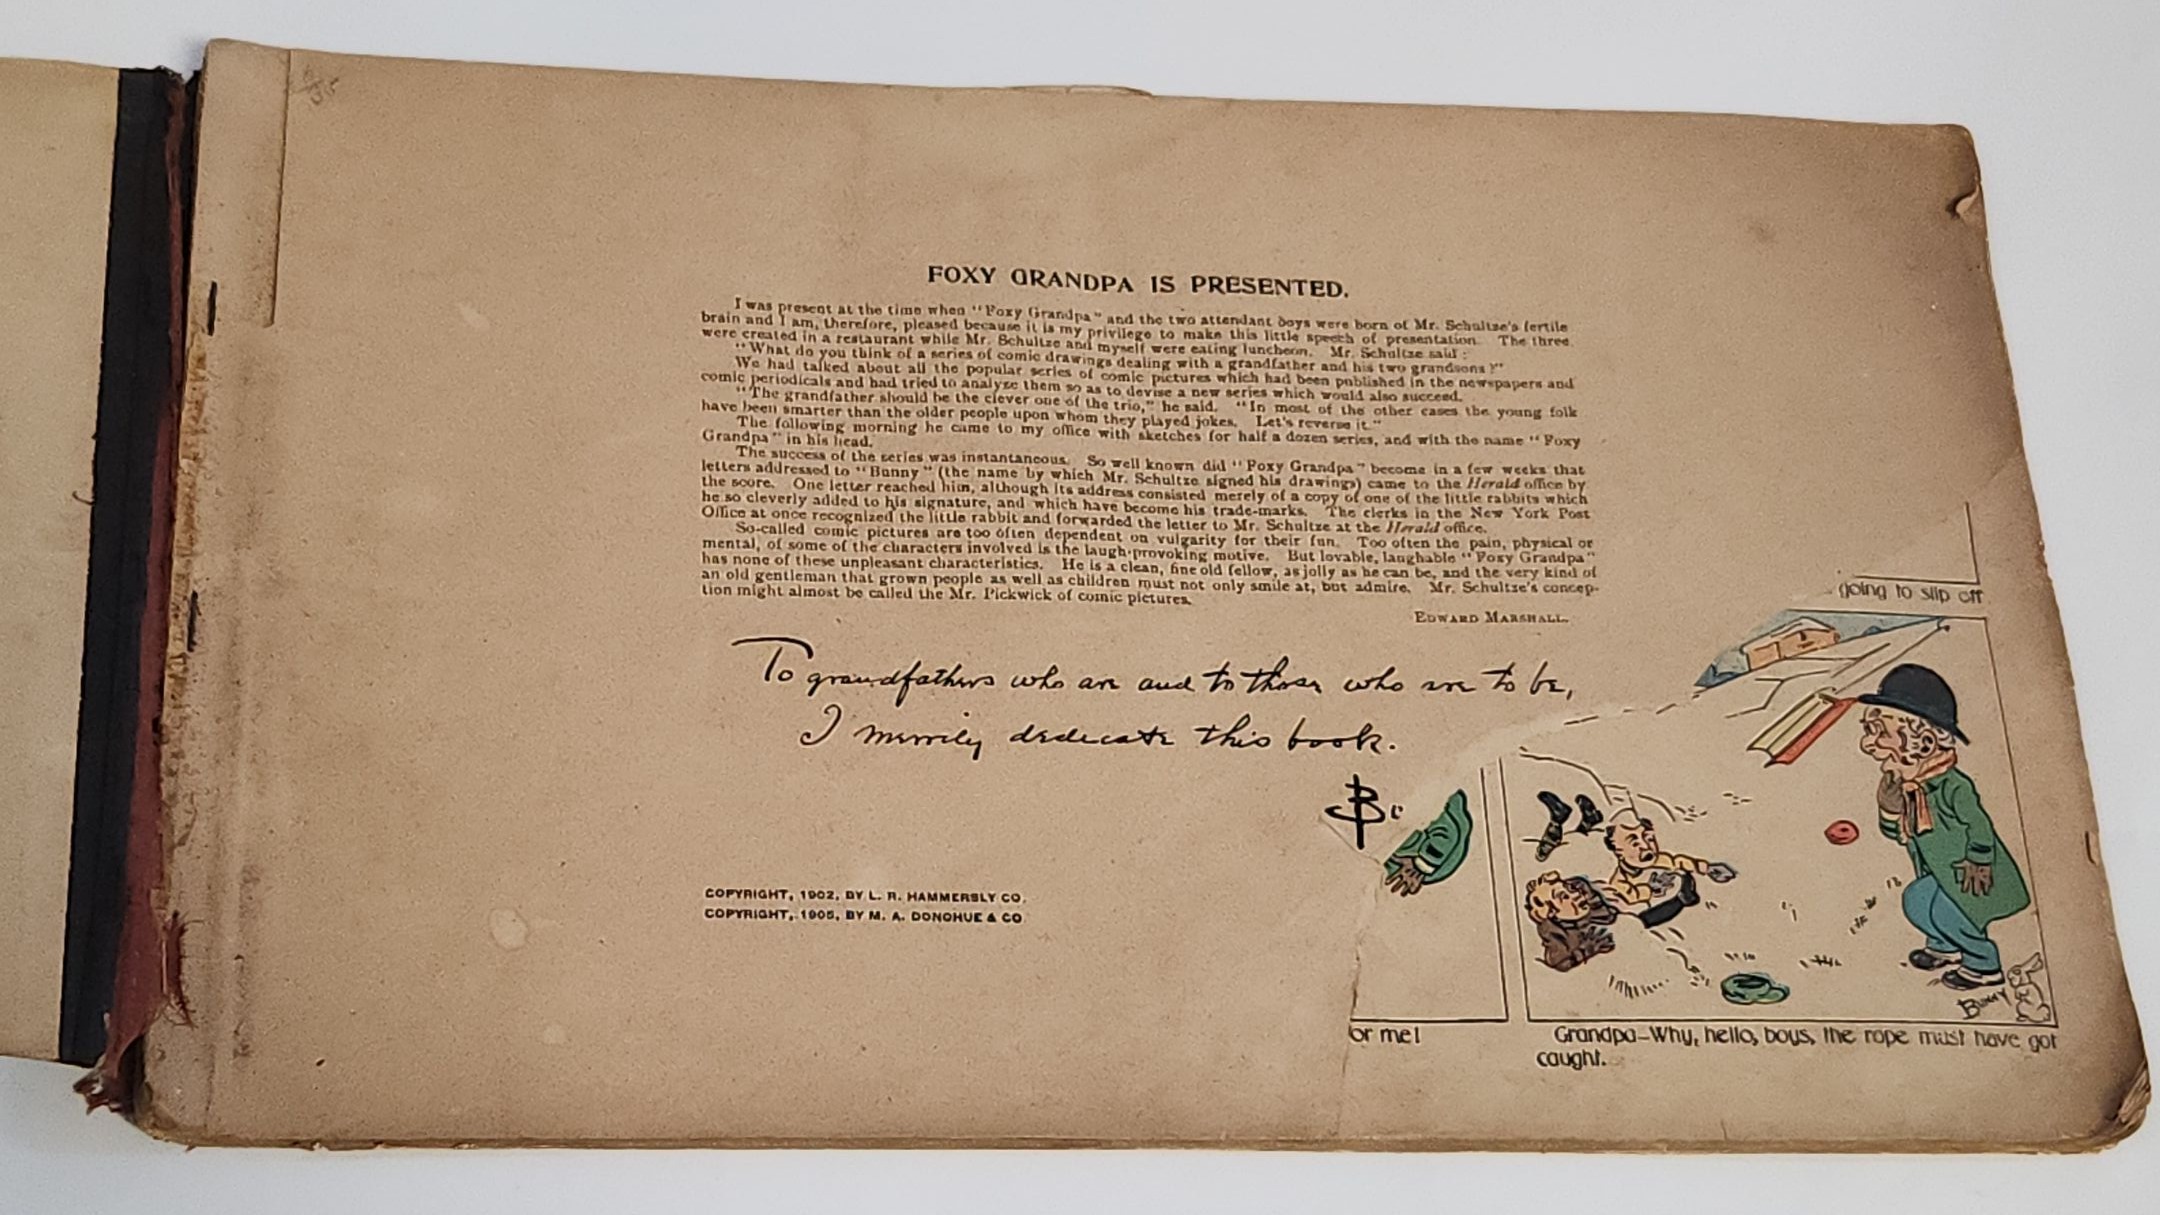 FOXY GRANDPA IS PRESENTED.
I was present at the time when "Foxy Grandpa" and the two attendant boys were born of Mr. Schultze's fertile
brain and I am, therefore, pleased because it is my privilege to make this little speech of presentation. The three
were created in a restaurant while Mr. Schultze and myself were eating luncheon. Mr. Schultze said:
"What do you think of a series of comic drawings dealing with a grandfather and his two grandsons?"
We had talked about all the popular series of comic pictures which had been published in the newspapers and
comic periodicals and had tried to analyze them so as to devise a new series which would also succeed.
"The grandfather should be the clever one of the trio," he said. "In most of the other cases the young folk
have been smarter than the older people upon whom they played jokes. Let's reverse it."
The following morning he came to my office with sketches for half a dozen series, and with the name "Foxy
Grandpa" in his head.
The success of the series was instantaneous. So well known did "Foxy Grandpa" become in a few weeks that
letters addressed to "Bunny" (the name by which Mr. Schultze signed his drawings) came to the Herald office by
the score. One letter reached him, although its address consisted merely of a copy of one of the little rabbits which
he so cleverly added to his signature, and which have become his trade-marks. The clerks in the New York Post
Office at once recognized the little rabbit and forwarded the letter to Mr. Schultze at the Herald office.
So-called comic pictures are too often dependent on vulgarity for their fun. Too often the pain, physical or
mental, of some of the characters involved is the laugh-provoking motive. But lovable, laughable "Foxy Grandpa"
has none of these unpleasant characteristics. He is a clean, fine old fellow, as jolly as he can be, and the very kind of
an old gentleman that grown people as well as children must not only smile at, but admire. Mr. Schultze's concep-
tion might almost be called the Mr. Pickwick of comic pictures.
EDWARD MARSHALL.
To grandfathers who are and to those who are to be,
I merrily dedicate this book.
COPYRIGHT, 1902, BY L. R. HAMMERSLY CO.
COPYRIGHT, 1905, BY M. A. DONOHUE & CO
going to slip off
BUNNY
or me!
Grandpa—Why, hello, boys, the rope must have got
caught.